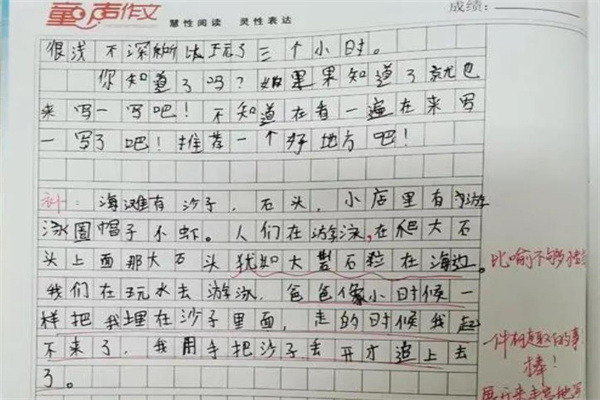 童声作文 慧性阅读 灵性表达 成绩:
很浅不深所以玩了三个小时。
你知道了吗?如果果知道了就也
来写一写吧!不知道在看一遍在来写
一写了吧!推荐一个好地方吧!
补:海滩有沙子,石头,小店里有游
泳圈帽子不虾。人们在游泳,在爬大石
头上面那大石头犹如大石粒在海边。
比喻不够恰
我们在玩水去游泳,爸爸像小时候一
样把我埋在沙子里面,走的时候我起
一件有趣的事
不来了,我用手把沙子丢开才追上去
棒!
了。
展开来